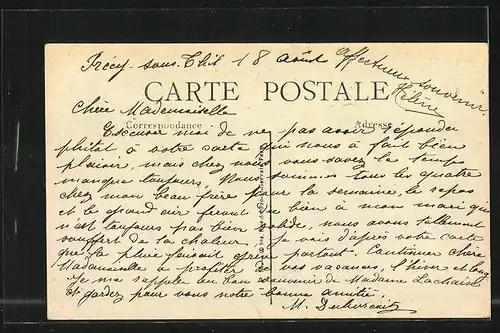 Précy-sous-Thil 18 Août
Affectueux souvenir
Hélène
CARTE POSTALE
Chère Mademoiselle
Correspondance Adresse
Excuser moi de ne pas avoir répondu
plutôt à votre carte qui nous a fait bien
plaisir, mais chez nous vous savez le temps
manque toujours. Nous sommes tous les quatre
chez mon beau frère pour la semaine, le repos
et le grand air feront du bien à mon mari qui
n'est toujours pas bien solide, nous avons tellement
souffert de la chaleur. Je vois d'après votre carte
que la pluie faisait partout. Continuer chère
Mademoiselle à profiter de vos vacances, l'hiver est long
Je me rappelle au bon souvenir de Madame Lachaise
et gardez pour vous notre bonne amitié,
M.